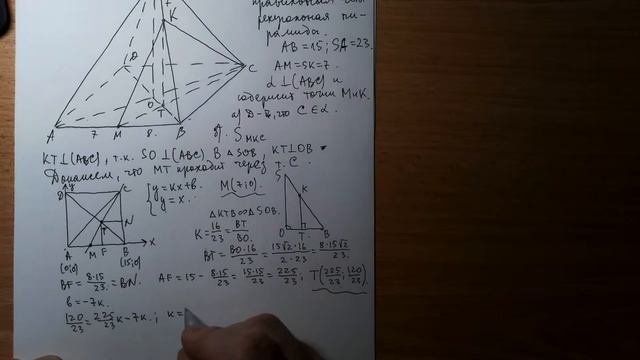 рамиды.
AB = 15; SA = 23.
AM = SK = 7.
α ⊥ (ABC) и
содержит точки M и K.
а) Д-ть, что C ∈ α.
б) S MKC
S
K
D
C
O
T
A 7 M 8. B
KT ⊥ (ABC), т.к. SO ⊥ (ABC). В △SOB, KT ⊥ OB
Докажем, что MT проходит через т. C.
D y C
N
T
A M F B x
(0;0) (15;0)
{ y = kx + b.
y = x.
M(7;0).
△KTB ∞ △SOB.
K = 16/23 = BT/BO.
S
K
O T B
BT = BO·16/23 = 15√2·16/2·23 = 8·15√2/23.
BF = 8·15/23 = BN.
AF = 15 - 8·15/23 = 15·15/23 = 225/23; T(225/23; 120/23).
b = -7k.
120/23 = 225/23 k - 7k.; k =